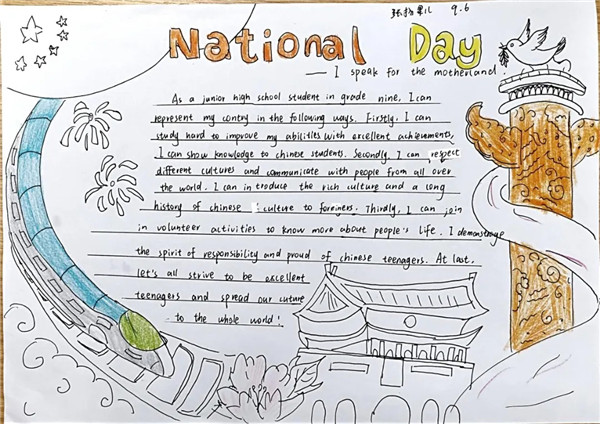 9.6
National Day
— I speak for the motherland.
As a junior high school student in grade nine, I can
represent my contry in the following ways. Firstly, I can
study hard to improve my abilitits with excellent achievements,
I can show knowledge to chinese students. Secondly, I can respect
different cultures and communicate with people from all over
the world. I can introduce the rich culture and a long
history of chinese culture to foriners. Thirdly, I can join
in volunteer activities to know more about people's life. I demonstrage
the spirit of responsibility and proud of chinese teenagers. At last,
let's all strive to be excellent
teenagers and spread our cuture
to the whole world!